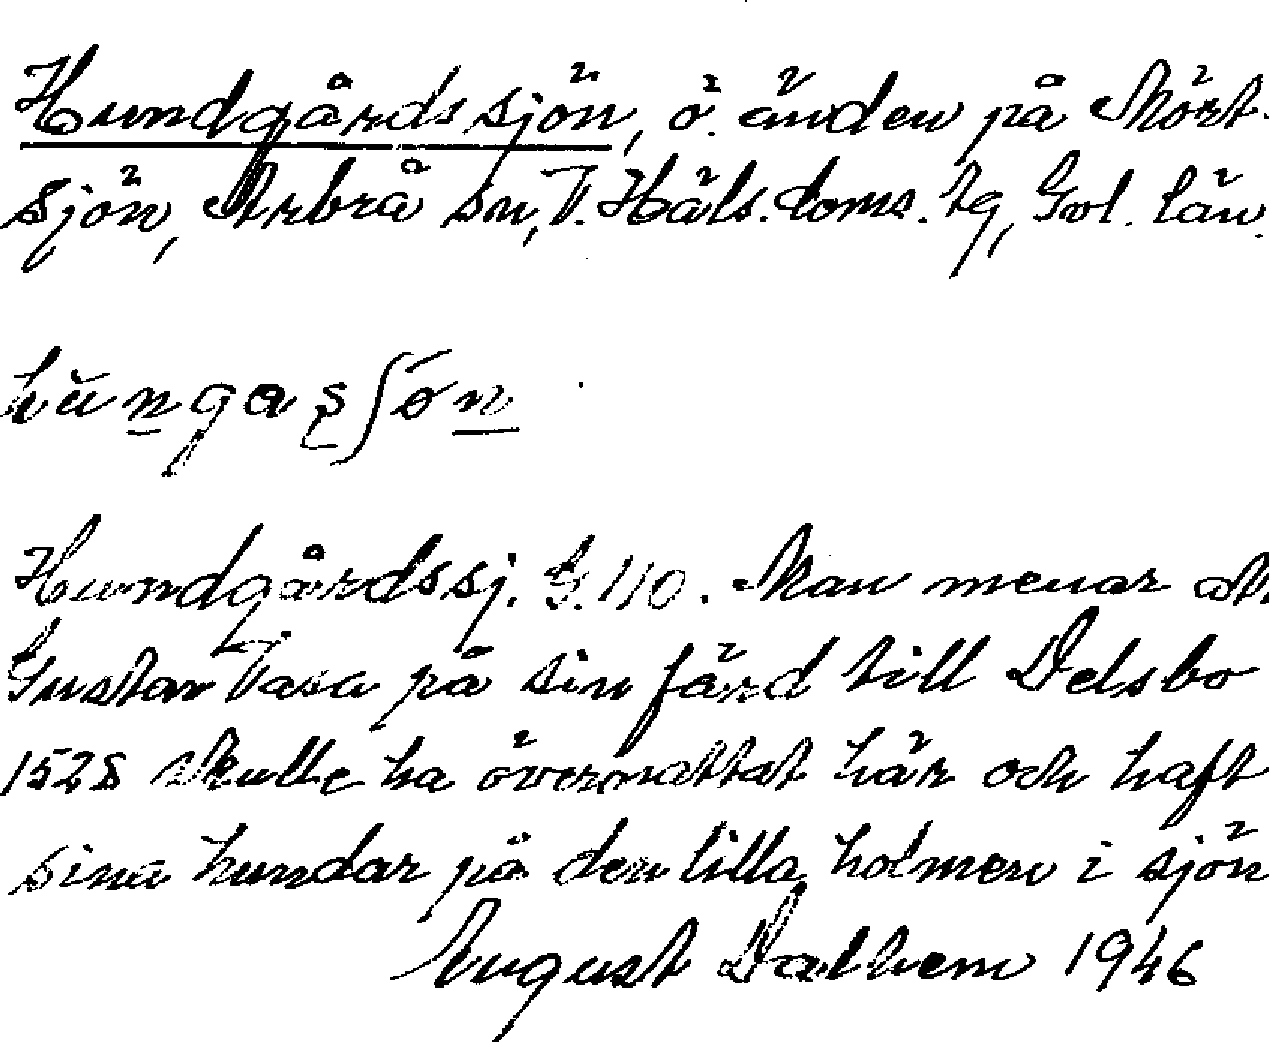 Hundgårdssjön, ö. änden på Mört-
sjön, Arbrå sn, V. Häls. doms. tg, Gvl. län.
hùngasʃön
Hundgårdssj. G. 110. Man menar att
Gustav Vasa på sin färd till Delsbo
1528 skulle ha övernattat här och haft
sina hundar på den lilla holmen i sjön
August Dalhem 1946